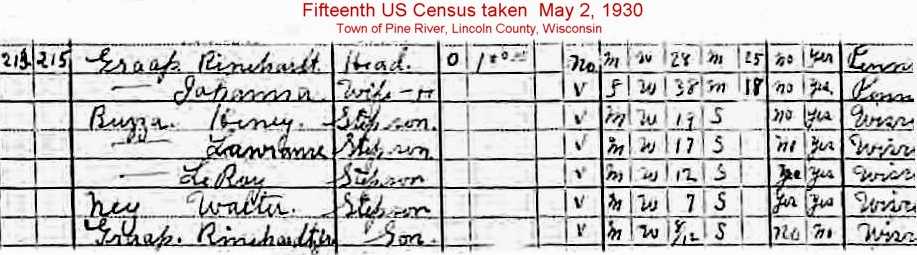 Fifteenth US Census taken May 2, 1930
Town of Pine River, Lincoln County, Wisconsin
213 215 Graap. Rinehardt Head. O No M W 28 M 25 no Yes Penn
— Johanna Wife-H V F W 38 M 18 no Yes Penn
Buzza. Henry. Stepson. V M W 19 S no Yes Wisc
— Lawrance Stepson. V M W 17 S no Yes Wisc
— LeRoy Stepson V M W 12 S Yes Yes Wisc
Ney Walter. Stepson V M W 7 S Yes Yes Wisc
Graap. Rinehardt Jr Son. V M W S No no Wisc